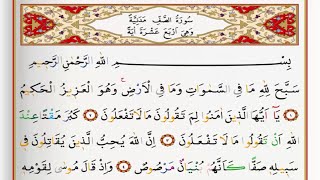 سُورَةُ الصَّفِّ مَدَنِيَّةٌ
وَهِيَ اَرْبَعَ عَشْرَةَ اٰيَةً
بِسْــــمِ اللّٰهِ الرَّحْمٰنِ الرَّحِيمِ
سَبَّحَ لِلّٰهِ مَا فِي السَّمٰوَاتِ وَمَا فِي الْاَرْضِۚ وَهُوَ الْعَزِيزُ الْحَكِيمُ
﴿١﴾ يَٓا اَيُّهَا الَّذِينَ اٰمَنُوا لِمَ تَقُولُونَ مَا لَا تَفْعَلُونَ ﴿٢﴾ كَبُرَ مَقْتًا عِنْدَ
اللّٰهِ اَنْ تَقُولُوا مَا لَا تَفْعَلُونَ ﴿٣﴾ اِنَّ اللّٰهَ يُحِبُّ الَّذِينَ يُقَاتِلُونَ فِي
سَبِيلِهِ صَفًّا كَاَنَّهُمْ بُنْيَانٌ مَرْصُوصٌ ﴿٤﴾ وَاِذْ قَالَ مُوسٰى لِقَوْمِهِ